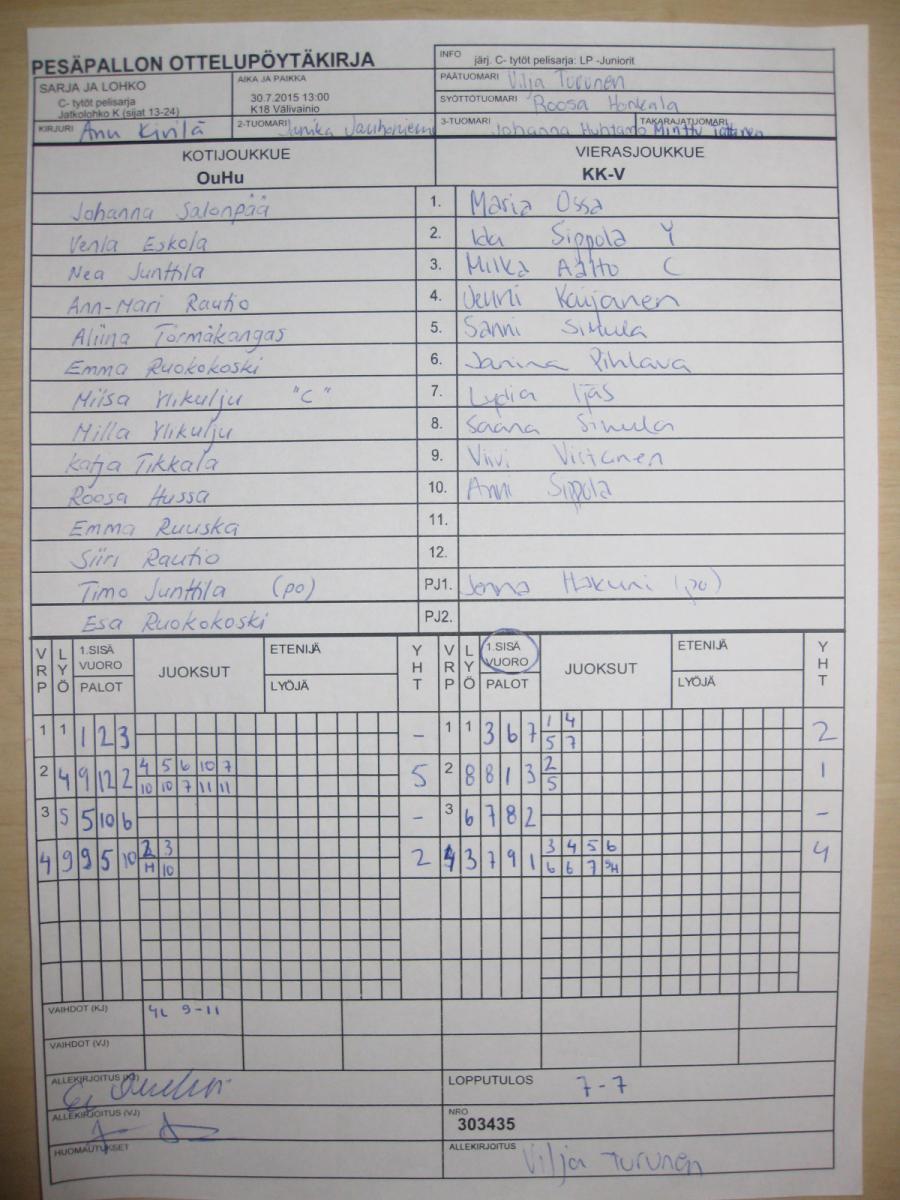 PESÄPALLON OTTELUPÖYTÄKIRJA
INFO järj. C- tytöt pelisarja: LP -Juniorit
SARJA JA LOHKO
C- tytöt pelisarja
Jatkolohko K (sijat 13-24)
AIKA JA PAIKKA
30.7.2015 13:00
K18 Välivainio
PÄÄTUOMARI Vilja Turunen
SYÖTTÖTUOMARI Roosa Honkala
KIRJURI Anu Kivilä
2-TUOMARI Janika
3-TUOMARI Johanna Huhtamo
TAKARAJATUOMARI Minttu
KOTIJOUKKUE
OuHu
VIERASJOUKKUE
KK-V
Johanna Salonpää 1. Maria Ossa
Venla Eskola 2. Ida Sippola Y
Nea Junttila 3. Milka Aalto C
Ann-Mari Rautio 4. Jenni Kaijanen
Aliina Törmäkangas 5. Sanni Simula
Emma Ruokokoski 6. Janina Pihlava
Miisa Ylikulju "C" 7. Lydia Ijäs
Milla Ylikulju 8. Saana Simula
Katja Tikkala 9. Viivi Virtanen
Roosa Hussa 10. Anni Sippola
Emma Ruuska 11.
Siiri Rautio 12.
Timo Junttila (po) PJ1. Jonna Hakuni (po)
Esa Ruokokoski PJ2.
VRP LYÖ 1.SISÄ VUORO PALOT JUOKSUT ETENIJÄ LYÖJÄ YHT VRP LYÖ 1.SISÄ VUORO PALOT JUOKSUT ETENIJÄ LYÖJÄ YHT
1 1 1 2 3 - 1 1 3 6 7 1 4 2
5 7
2 4 9 12 2 4 5 6 10 7 5 2 8 8 1 3 2 1
10 10 7 11 11 5
3 5 5 10 6 - 3 6 7 8 2 -
4 9 9 5 10 2 3 2 4 3 7 9 1 3 4 5 6 4
H 10 6 6 7 9H
VAIHDOT (KJ) 4L 9-11
VAIHDOT (VJ)
ALLEKIRJOITUS (KJ)
LOPPUTULOS 7-7
ALLEKIRJOITUS (VJ)
NRO
303435
HUOMAUTUKSET
ALLEKIRJOITUS Vilja Turunen